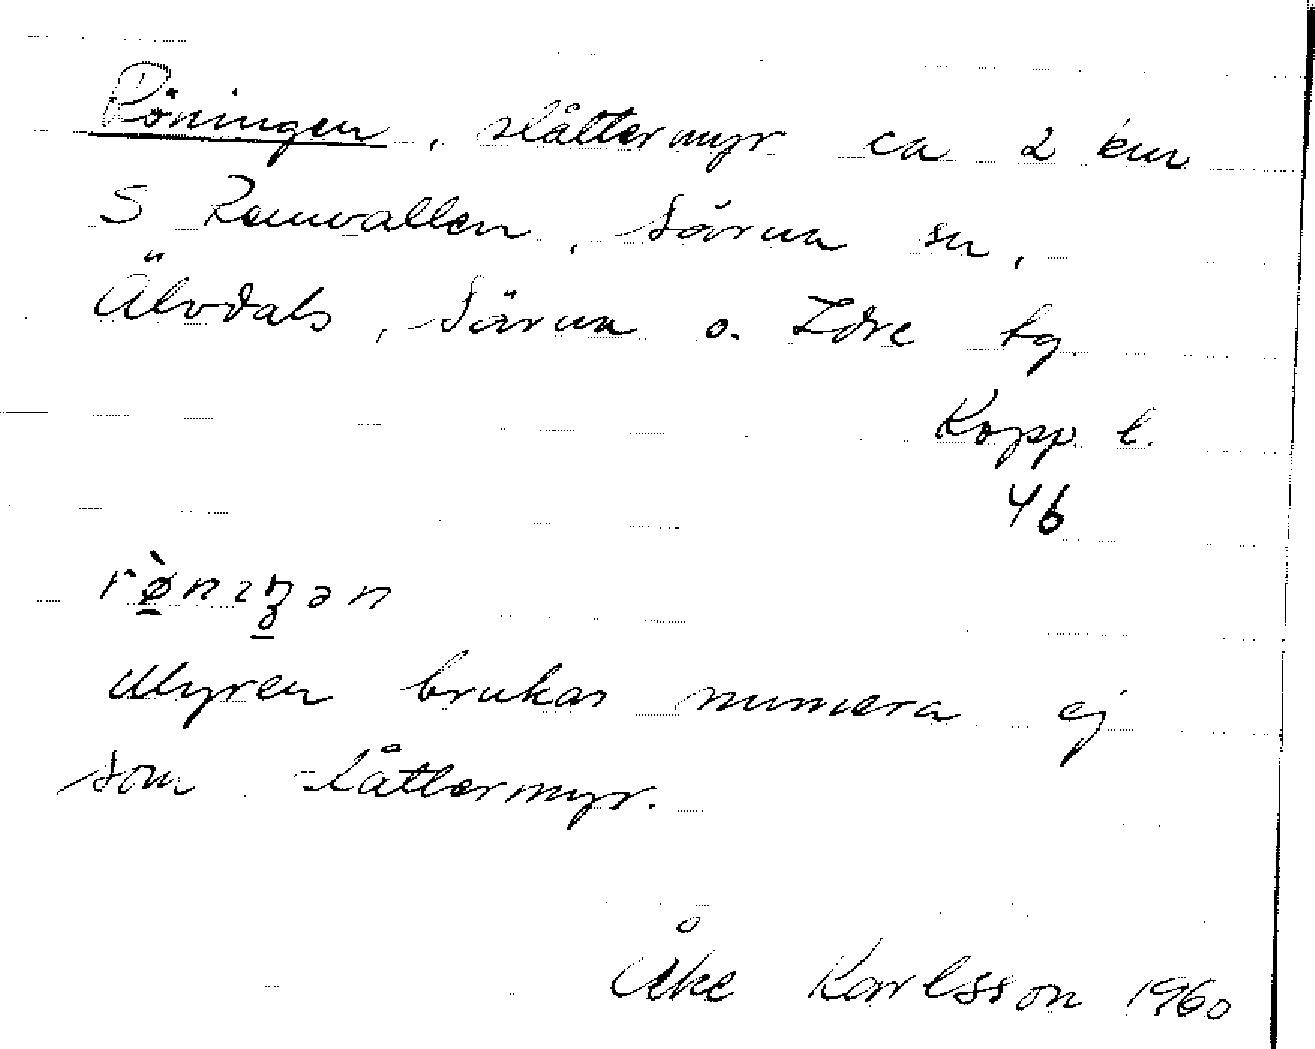 Röningen, slåttermyr ca 2 km
S Remvallen, Särna sn,
Älvdals, Särna o. Idre tg.
Kopp. l.
46
Myren brukas numera ej
som slåttermyr.
Åke Karlsson 1960